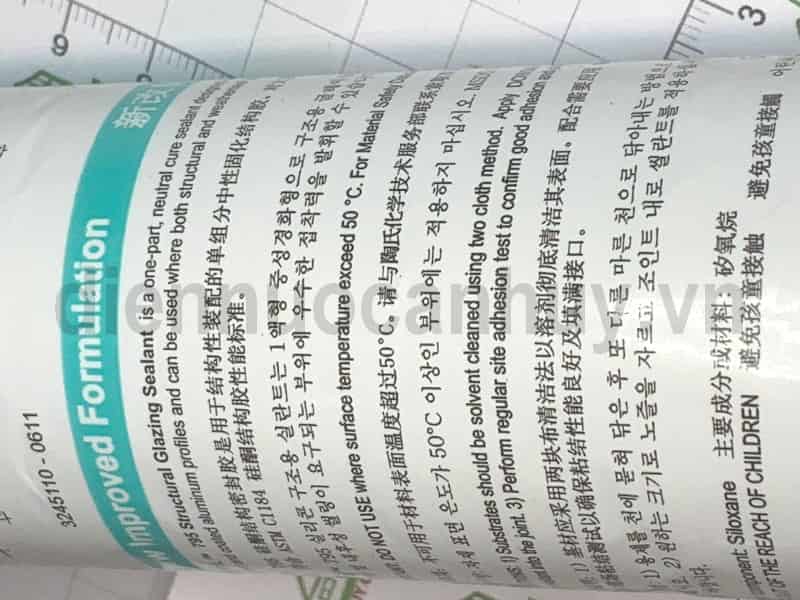 6
3
3245110 - 0611
Improved Formulation
新 改
795 Structural Glazing Sealant is a one-part, neutral cure sealant
aluminum profiles and can be used where both structural and
硅酮结构密封胶是用于结构性装配的单组分中性固化结构胶,
ASTN C1184 硅酮结构胶性能标准。
795 실리콘 구조용 실란트는 1액형 중성경화형으로 구조용
실링이 요구되는 부위에 우수한 접착력을 발휘할 수
DO NOT USE where surface temperature exceed 50 °C. For Material Safety
不可用于材料表面温度超过50°C。请与陶氏化学技术服务部联系
자재 표면 온도가 50°C 이상인 부위에는 적용하지 마십시오.
1) Substrates should be solvent cleaned using two cloth method. Apply
into the joint. 3) Perform regular site adhesion test to confirm good adhesion
1) 基材应采用两块布清洁法以溶剂彻底清洁其表面。配合需要
粘结测试以确保粘结性能良好及填满接口。
1) 용제를 천에 묻혀 닦은 후 또 다른 마른 천으로 닦아내는 방법
2) 원하는 크기로 노즐을 자르고 조인트 내로 씰란트를
Siloxane 主要成分或材料: 矽氧烷
OF THE REACH OF CHILDREN 避免孩童接触 避免孩童接觸
diennuocanhuy.vn